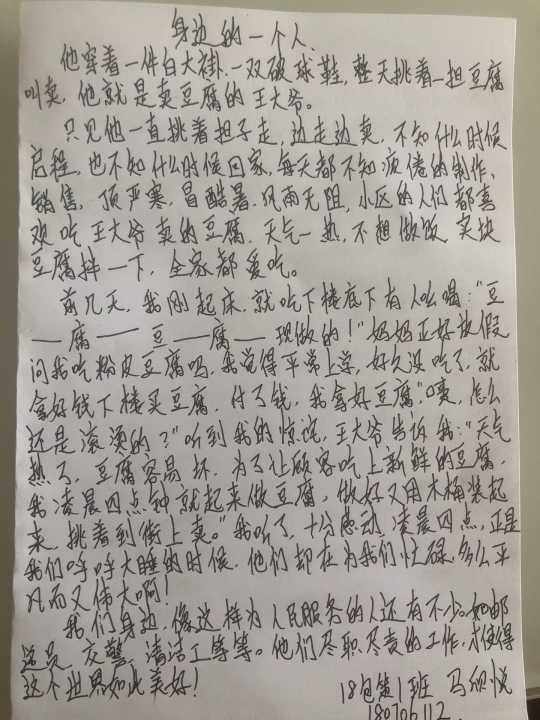 身边的一个人、
他穿着一件白大褂、一双破球鞋,整天挑着一担豆腐
叫卖,他就是卖豆腐的王大爷。
只见他一直挑着担子走,边走边卖,不知什么时候
启程,也不知什么时候回家,每天都不知疲倦的制作、
销售,顶严寒,冒酷暑,风雨无阻,小区的人们都喜
欢吃王大爷卖的豆腐,天气一热,不想做饭,买块
豆腐拌一下,全家都爱吃。
前几天,我刚起床,就听下楼底下有人吆喝:“豆
——腐——豆——腐——现做的!”妈妈正好放假
问我吃粉皮豆腐吗,我觉得平常上学,好久没吃了,就
拿好钱下楼买豆腐,付了钱,我拿好豆腐“噢,怎么
还是滚烫的?”听到我的惊诧,王大爷告诉我:“天气
热了,豆腐容易坏,为了让顾客吃上新鲜的豆腐,
我凌晨四点钟就起来做豆腐,做好又用木桶装起
来,挑着到街上卖。”我听了,十分感动,凌晨四点,正是
我们呼呼大睡的时候,他们却在为我们忙碌,多么平
凡而又伟大啊!
我们身边,像这样为人民服务的人还有不少。如邮
递员、交警、清洁工等等。他们尽职尽责的工作,才使得
这个世界如此美好!
18包策1班 马欣悦
180706112